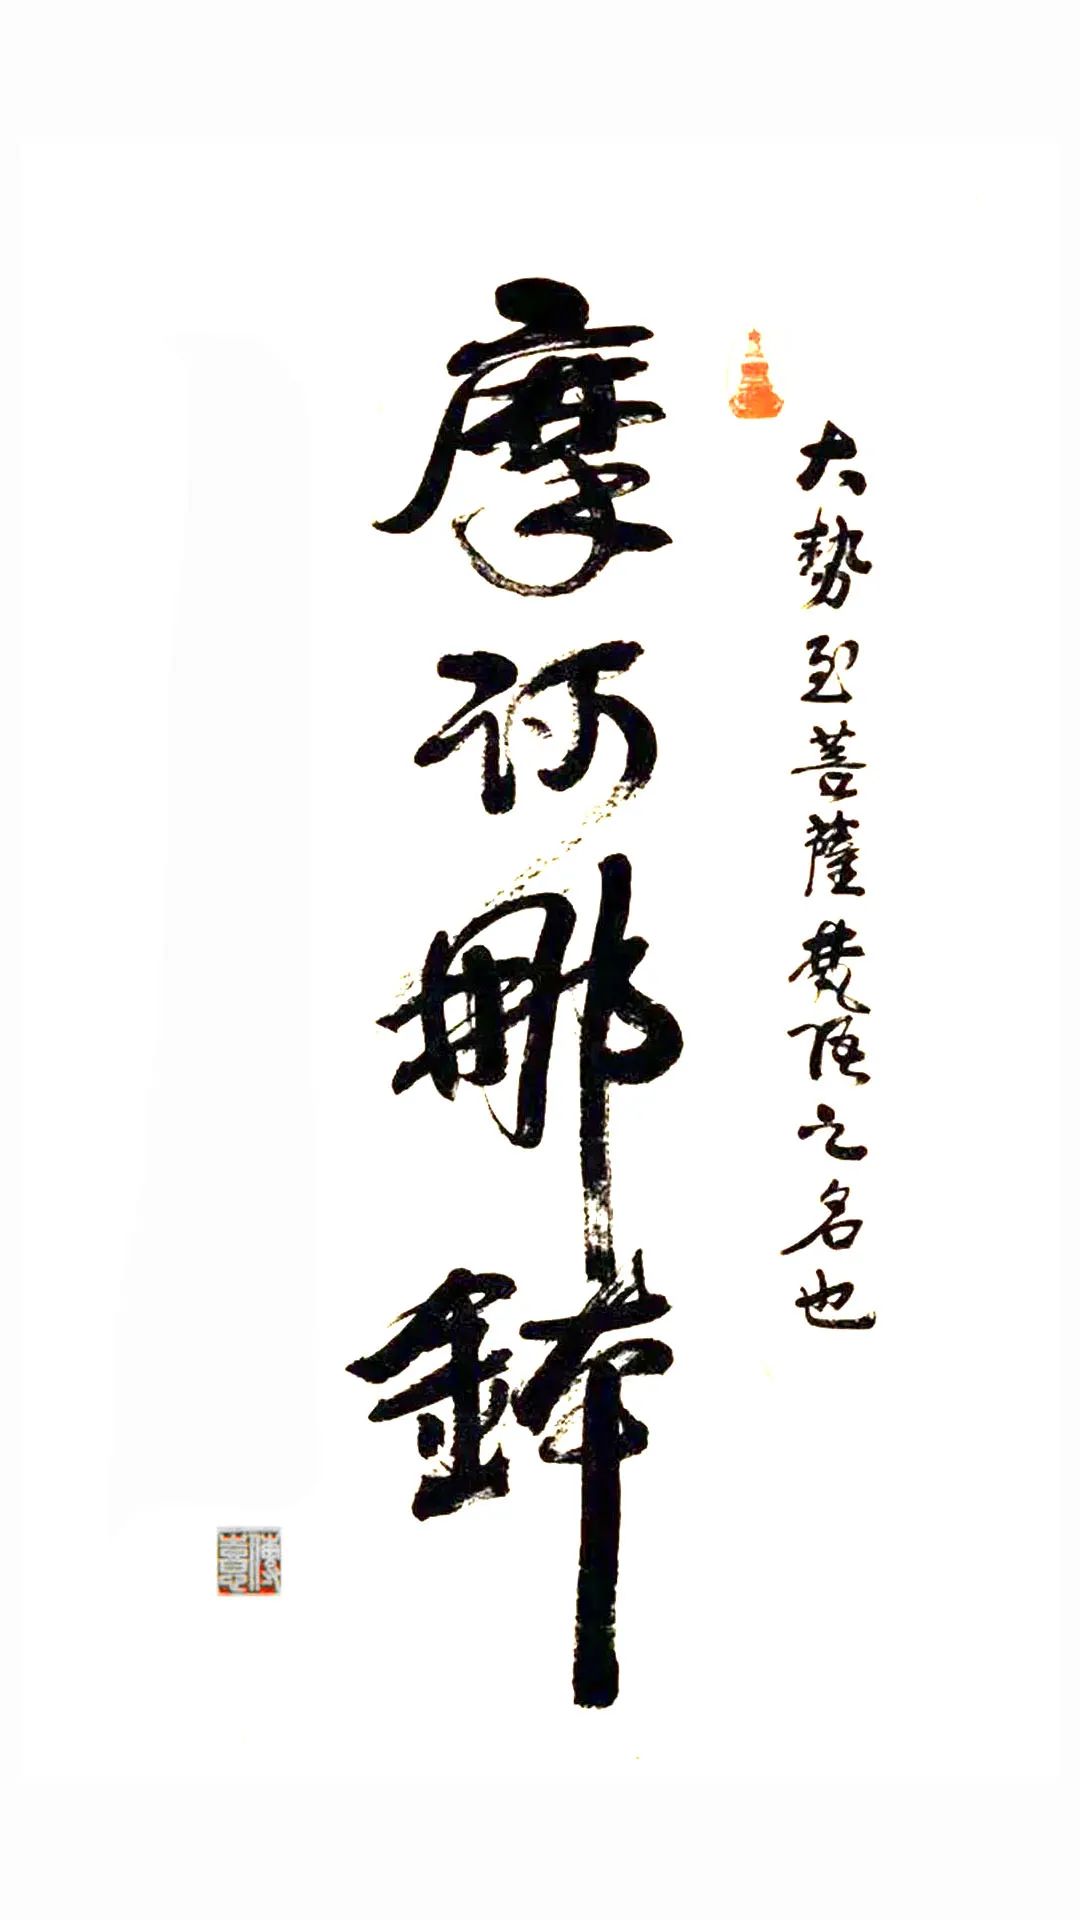 大勢至菩薩梵語之名也
摩訶那鉢